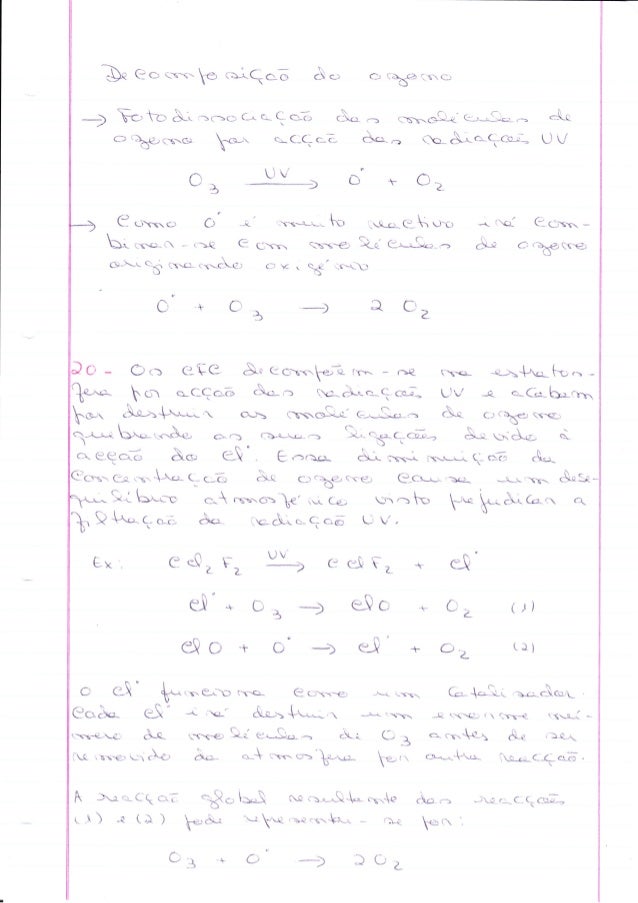 Decomposição do ozono
→ Fotodissociação das moléculas de
ozono por acção das radiações UV
O₃ —UV→ O• + O₂
→ Como O• é muito reactivo irá com-
binar-se com moléculas de ozono
originando oxigénio
O• + O₃ → 2 O₂
20 - Os CFC decompõem-se na estratos-
fera por acção das radiações UV e acabam
por destruir as moléculas de ozono
quebrando as suas ligações devido à
acção do Cl•. Essa diminuição da
concentração de ozono causa um dese-
quilíbrio atmosférico visto prejudicar a
filtração da radiação UV.
Ex: CCl₂F₂ —UV→ CClF₂ + Cl•
Cl• + O₃ → ClO + O₂ (1)
ClO + O• → Cl• + O₂ (2)
O Cl• funciona como um catalisador.
Cada Cl• irá destruir um enorme nú-
mero de moléculas de O₃ antes de ser
removido da atmosfera por outra reacção.
A reacção global resultante das reacções
(1) e (2) pode representar-se por:
O₃ + O• → 2O₂